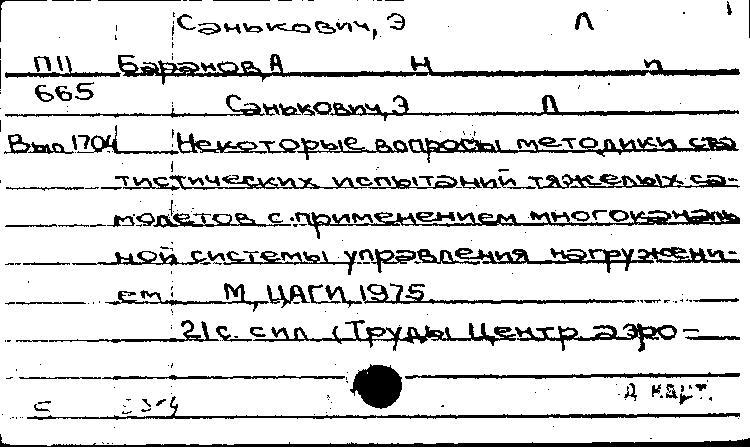 Санькович, Э Л
ПП Баранов, А Н п
665 Санькович, Э Л
Вып 1704 Некоторые вопросы методики ста
тистических испытаний тяжелых са-
молетов с применением многоканаль
ной системы управления нагружени-
ем М, ЦАГИ, 1975
21 с. с ил (Труды Центр. аэро-
д карт.